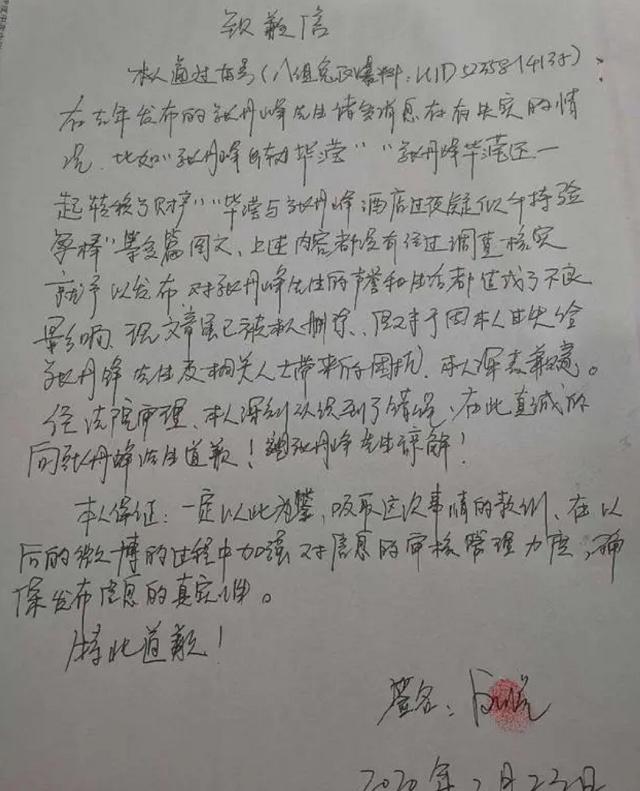 致歉信
本人通过占号(八组兔区爆料,UID523581413 )
在去年发布的张丹峰先生诸多消息存有失实的情
况,比如"张丹峰 毕滢""张丹峰毕滢还一
起转移了财产""毕滢与张丹峰酒店过夜疑似 持验
孕棒"等多篇图文,上述内容都没有经过调查核实
就予以发布,对张丹峰先生的声誉和生活都造成了不良
影响,现文章虽已被本人删除,但对于因本人过失给
张丹峰先生及相关人士带来的困扰,本人深表歉意。
经法院审理,本人深刻认识到了错误,在此真诚的
向张丹峰先生道歉!望张丹峰先生谅解!
本人保证:一定以此为鉴,吸取这次事情的教训,在以
后的微博的过程中加强对信息的审核管理力度,确
保发布信息的真实性。
特此道歉!
签名:
2020年 月23日